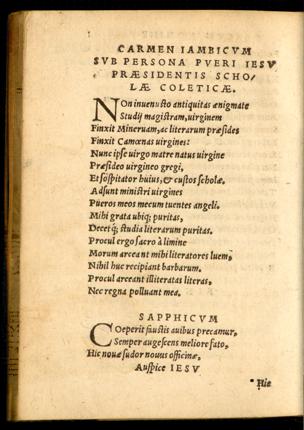 CARMEN IAMBICVM
SVB PERSONA PVERI IESV
PRÆSIDENTIS SCHO/
LÆ COLETICÆ.
NOn inuenusto antiquitas ænigmate
Studij magistram, uirginem
Finxit Mineruam, ac literarum præsides
Finxit Camœnas uirgines:
Nunc ipse uirgo matre natus uirgine
Præsideo uirgineo gregi,
Et sospitator huius, & custos scholæ.
Adsunt ministri uirgines
Pueros meos mecum tuentes angeli.
Mihi grata ubiq; puritas,
Decetq́; studia literarum puritas.
Procul ergo sacro à limine
Morum arceant mihi literatores luem,
Nihil huc recipiant barbarum.
Procul arceant illiteratas literas,
Nec regna polluant mea.
SAPPHICVM
COeperit faustis auibus precamur,
Semper augescens meliore fato,
Hic nouæ sudor nouus officinæ,
Auspice IESV
Hic